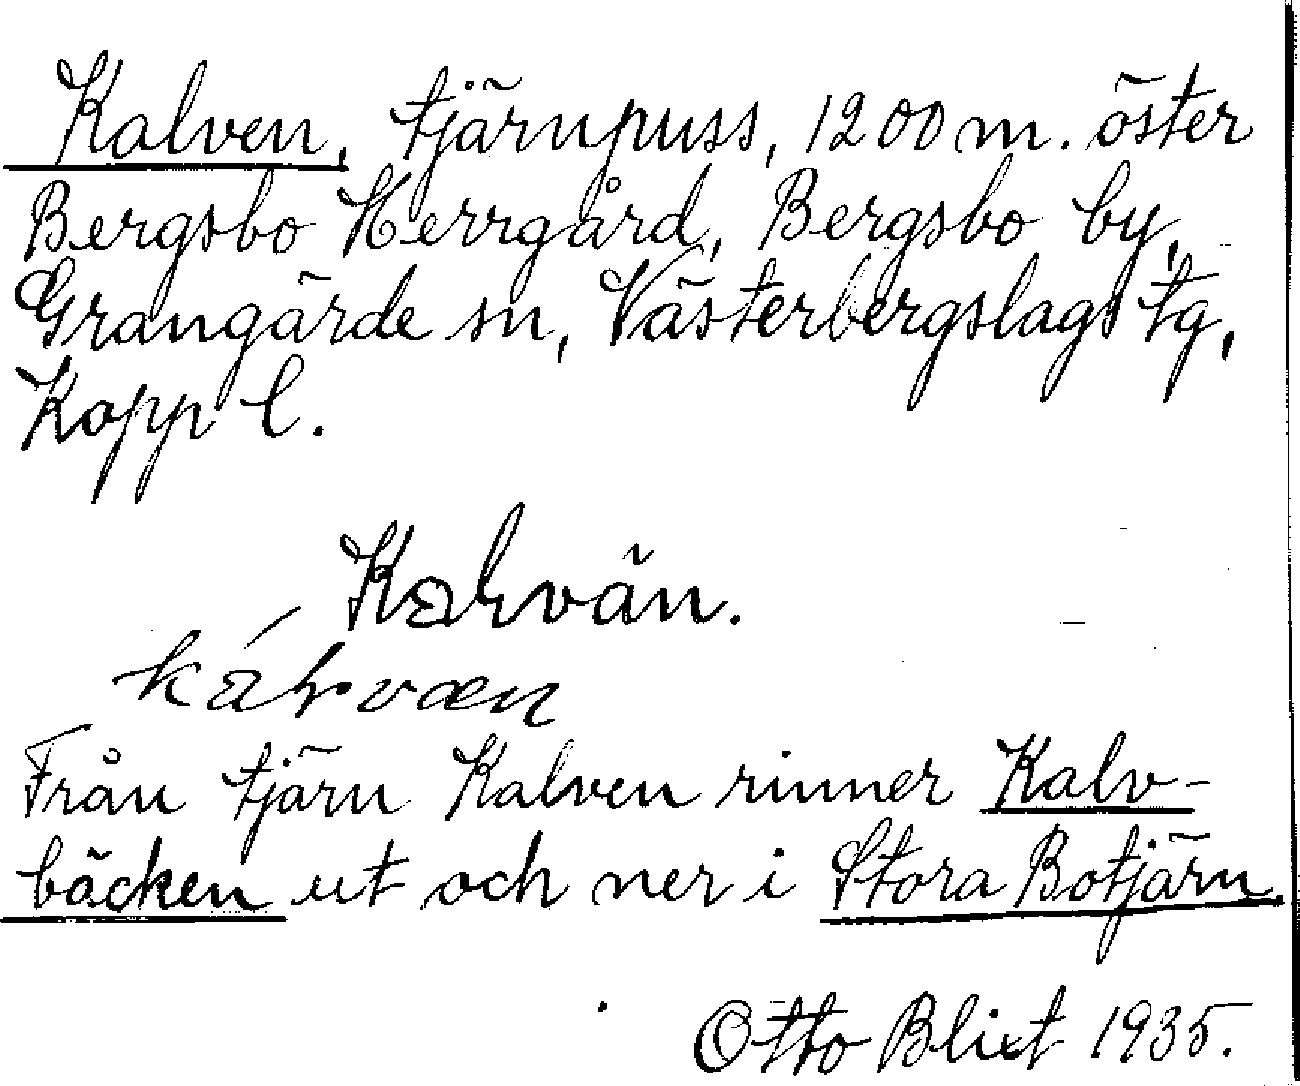 Kalven, tjärnpuss, 1200 m. öster
Bergsbo Herrgård, Bergsbo by,
Grangärde sn, Västerbergslags tg,
Kopp l.
Kalvän.
Från tjärn Kalven rinner Kalv-
bäcken ut och ner i Stora Botjärn.
Otto Blixt 1935.